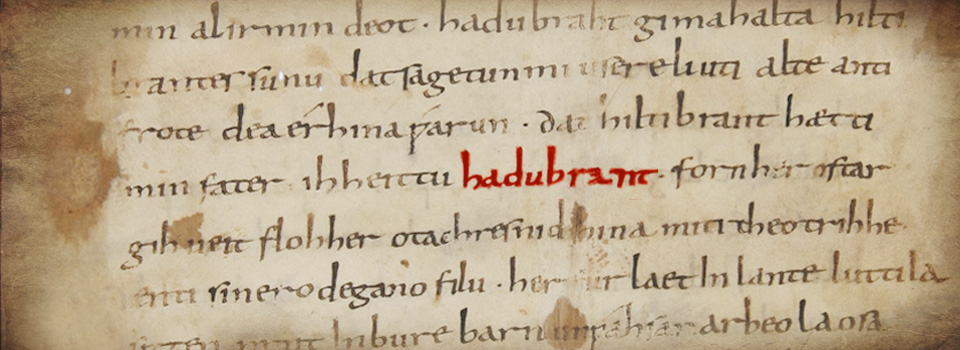 min al irmin deot · hadubraht gimahalta hilti
brantes sunu dat sagetun mi usere liuti alte anti
frote dea érhina parun · dat hiltibrant hætti
min fater · ih heittu hadubrant · forn her ostar
gihueit floh her otachres nid hina miti theotrihhe
enti sinero degano filu · her fur laet In lante luttila
sitten prut Inbure barn unpahsan arbeo laosa